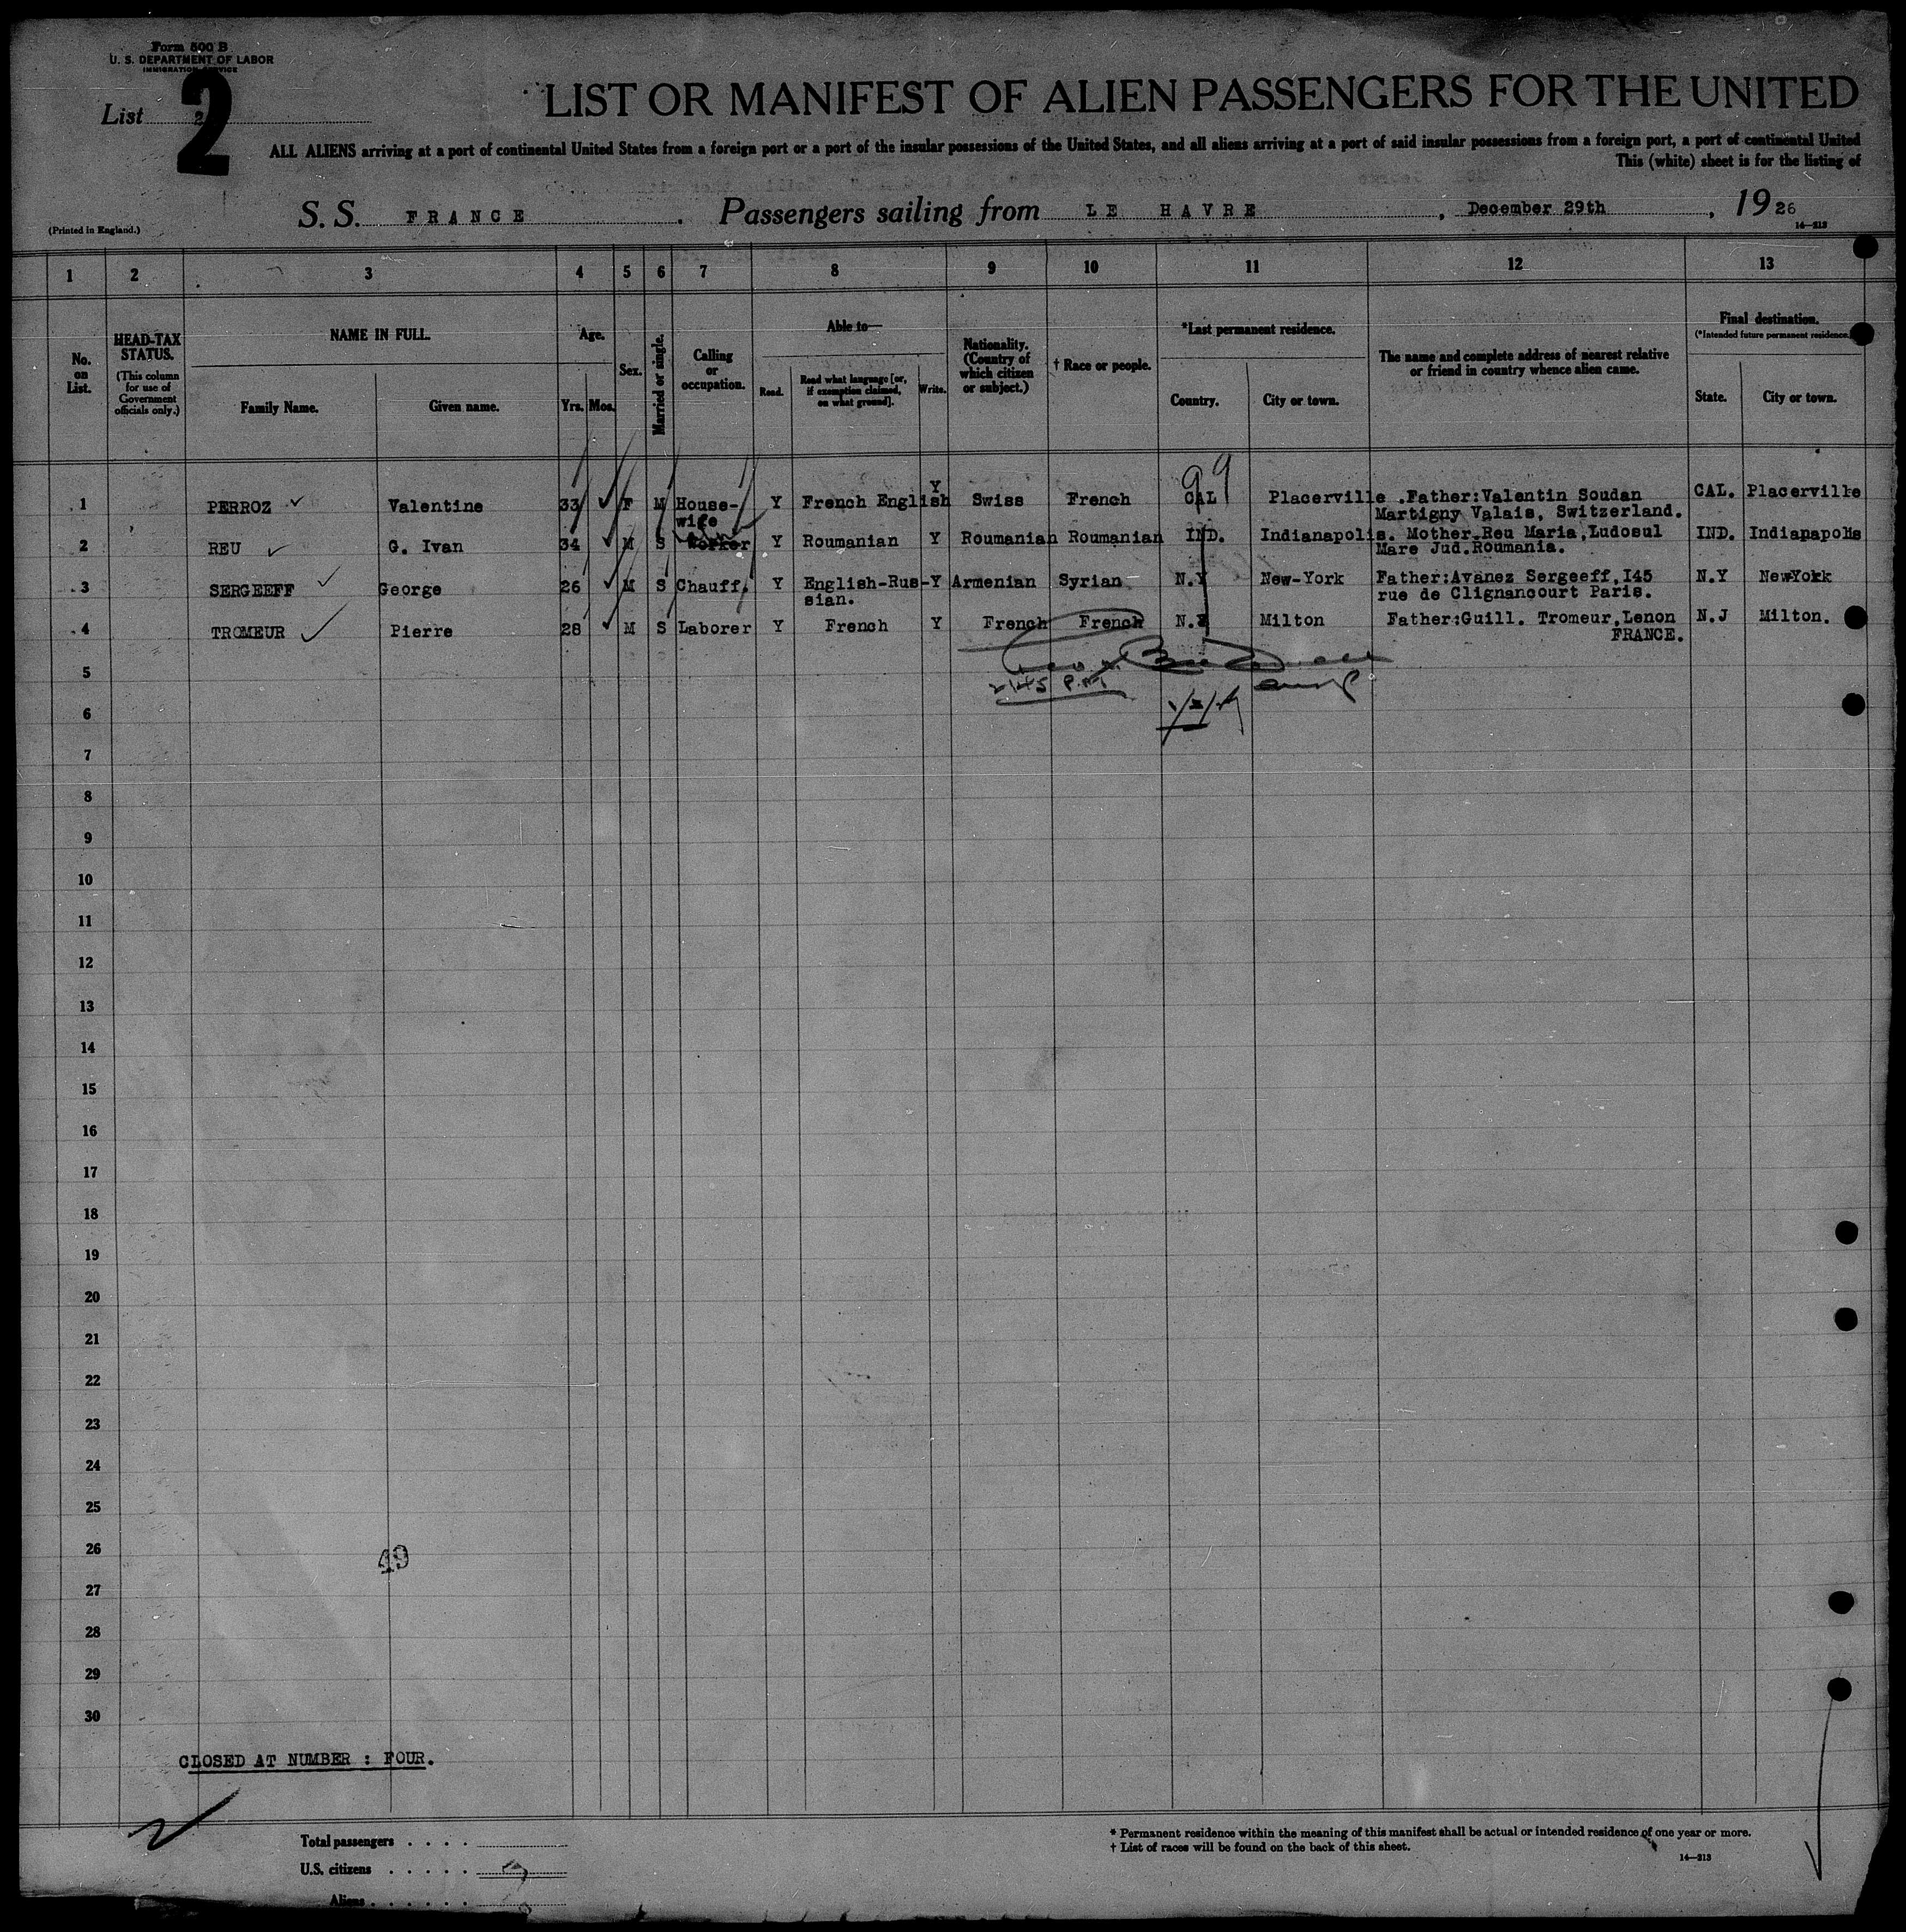 Form 500 B
U. S. DEPARTMENT OF LABOR
IMMIGRATION SERVICE
List 2
2
LIST OR MANIFEST OF ALIEN PASSENGERS FOR THE UNITED
ALL ALIENS arriving at a port of continental United States from a foreign port or a port of the insular possessions of the United States, and all aliens arriving at a port of said insular possessions from a foreign port, a port of continental United
This (white) sheet is for the listing of
S. S. FRANCE. Passengers sailing from LE HAVRE, December 29th, 1926
(Printed in England.)
14—213
1 2 3 4 5 6 7 8 9 10 11 12 13
No. on List.
HEAD-TAX STATUS.
(This column for use of Government officials only.)
NAME IN FULL.
Family Name. Given name.
Age.
Yrs. Mos.
Sex.
Married or single.
Calling or occupation.
Able to—
Read. Read what language [or, if exemption claimed, on what ground]. Write.
Nationality. (Country of which citizen or subject.)
† Race or people.
*Last permanent residence.
Country. City or town.
The name and complete address of nearest relative or friend in country whence alien came.
Final destination.
(*Intended future permanent residence.)
State. City or town.
1 PERROZ Valentine 33 F M House- Y French English Y Swiss French CAL Placerville .Father:Valentin Soudan CAL. Placerville
wife Martigny Valais, Switzerland.
2 REU G. Ivan 34 M S Worker Y Roumanian Y Roumanian Roumanian IND. Indianapolis. Mother.Reu Maria,Ludosul IND. Indianapolis
Mare Jud.Roumania.
3 SERGEEFF George 26 M S Chauff. Y English-Rus-Y Armenian Syrian N.Y New-York Father:Avanez Sergeeff,I45 N.Y NewYork
sian. rue de Clignancourt Paris.
4 TROMEUR Pierre 28 M S Laborer Y French Y French French Milton Father:Guill. Tromeur,Lenon N.J Milton.
FRANCE.
99
5
2:45 P.M.
6
7
8
9
10
11
12
13
14
15
16
17
18
19
20
21
22
23
24
25
26
49
27
28
29
30
CLOSED AT NUMBER : FOUR.
Total passengers . . . .
U.S. citizens . . . . .
Aliens . . . . . .
* Permanent residence within the meaning of this manifest shall be actual or intended residence of one year or more.
† List of races will be found on the back of this sheet.
14—213